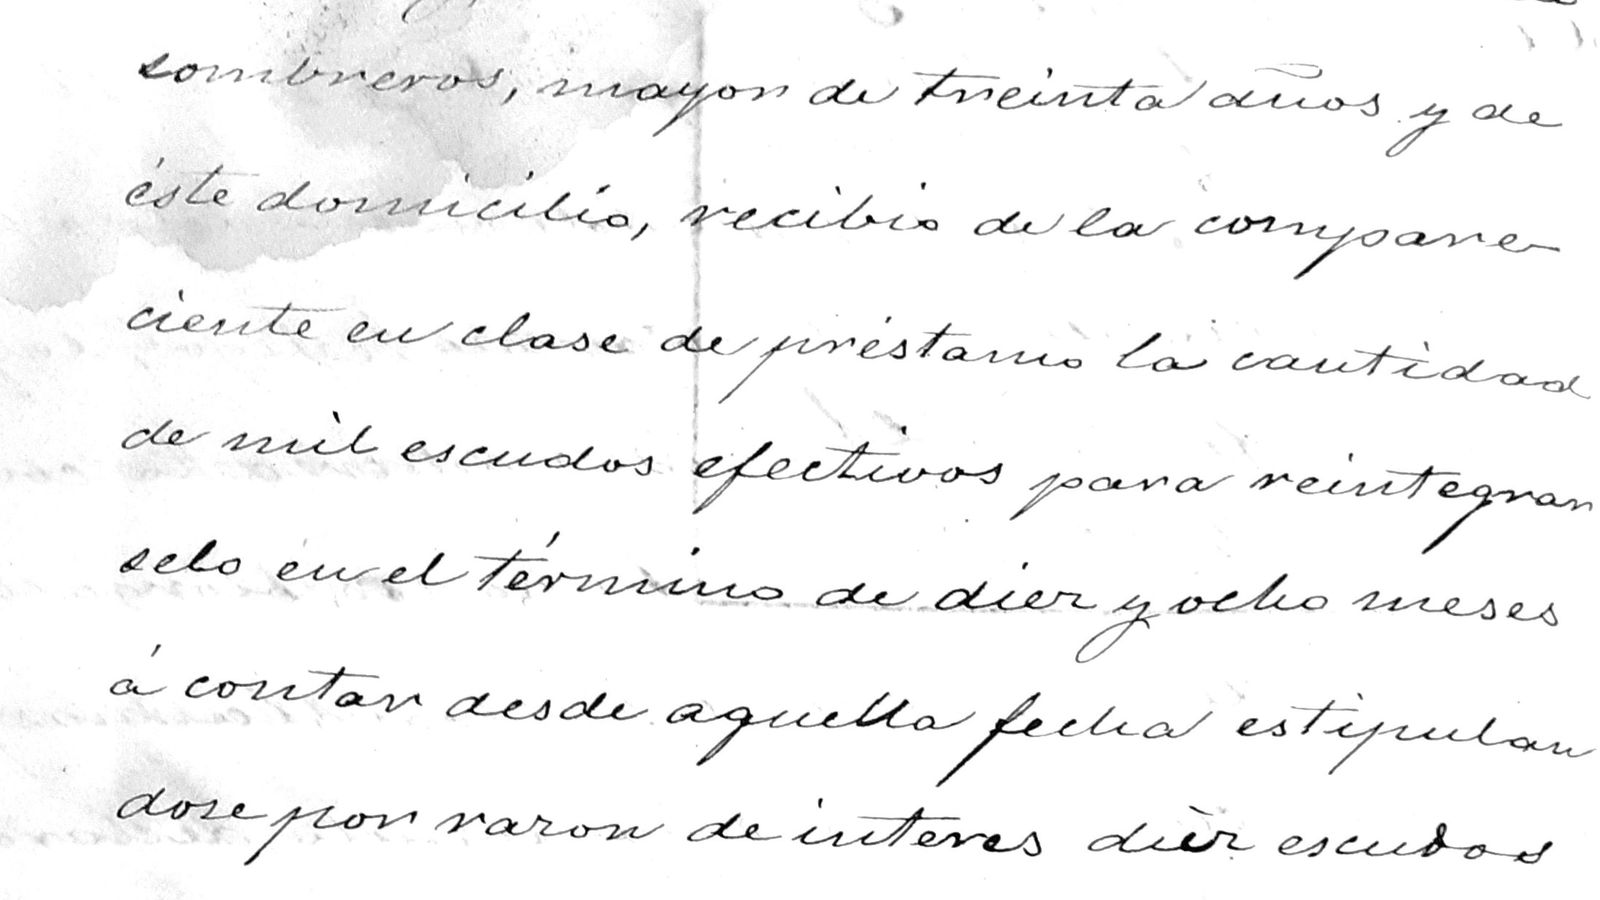 sombreros, mayor de treinta años y de
éste domicilio, recibio de la compare-
ciente en clase de préstamo la cantidad
de mil escudos efectivos para reintegrar
selo en el término de diez y ocho meses
á contar desde aquella fecha estipulan
dose por razon de interes diez escudos